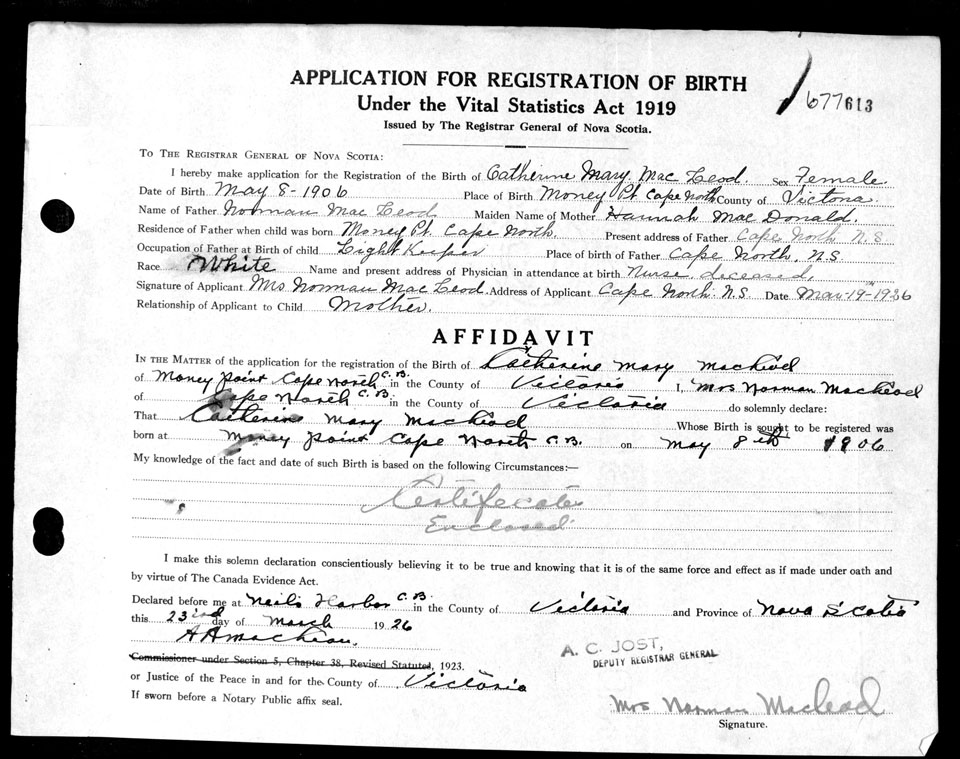 APPLICATION FOR REGISTRATION OF BIRTH
Under the Vital Statistics Act 1919
677613
Issued by The Registrar General of Nova Scotia.
TO THE REGISTRAR GENERAL OF NOVA SCOTIA:
I hereby make application for the Registration of the Birth of Catherine Mary Mac Leod. Sex Female
Date of Birth May 8-1906 Place of Birth Money Pt. Cape North County of Victoria
Name of Father Norman Mac Leod Maiden Name of Mother Hannah Mac Donald.
Residence of Father when child was born Money Pt. Cape North. Present address of Father Cape North N.S
Occupation of Father at Birth of child Light Keeper Place of birth of Father Cape North, N.S.
Race White Name and present address of Physician in attendance at birth Nurse deceased,
Signature of Applicant Mrs Norman Mac Leod. Address of Applicant Cape North. N.S. Date Mar-19-1926
Relationship of Applicant to Child Mother.
AFFIDAVIT
IN THE MATTER of the application for the registration of the Birth of Catherine Mary Macleod
of Money point Cape North C.B. in the County of Victoria I, Mrs Norman Macleod
of Cape North C.B. in the County of Victoria do solemnly declare:
That Catherine Mary Macleod Whose Birth is sought to be registered was
born at Money point Cape North C.B. on May 8th 1906
My knowledge of the fact and date of such Birth is based on the following Circumstances:—
Certificate
Enclosed
I make this solemn declaration conscientiously believing it to be true and knowing that it is of the same force and effect as if made under oath and
by virtue of The Canada Evidence Act.
Declared before me at Neils Harbor C.B. in the County of Victoria and Province of Nova Scotia
this 23rd day of March 1926
A. C. JOST,
DEPUTY REGISTRAR GENERAL
Commissioner under Section 5, Chapter 38, Revised Statutes, 1923.
or Justice of the Peace in and for the County of Victoria
If sworn before a Notary Public affix seal.
Mrs Norman Macleod
Signature.